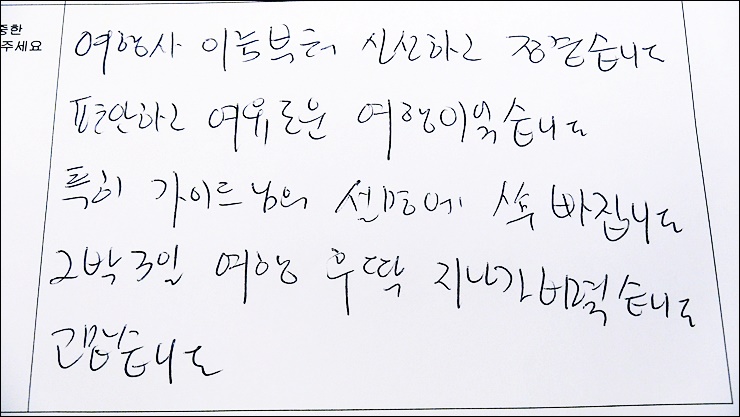 중한
주세요
여행사 이름부터 신선하고 정겹습니다
편안하고 여유로운 여행이였습니다
특히 가이드님의 설명에 쏙 빠집니다
2박3일 여행 후딱 지나가버렸습니다
고맙습니다